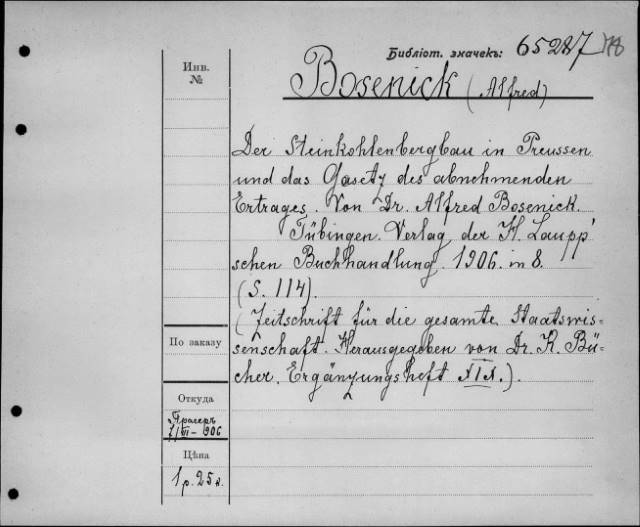 Библіот. значекъ: 65287
Инв.
№
Bosenick (Alfred)
Der Steinkohlenbergbau in Preussen
und das Gasetz des abnehmenden
Ertrages. Von Dr. Alfred Bosenick.
Tübingen. Verlag der H. Laupp'
schen Buchhandlung. 1906. in 8.
(S. 114).
(Zeitschrift für die gesamte Staatswis=
senschaft. Herausgegeben von Dr. K. Bü=
cher. Ergänzungsheft XIX.).
По заказу
Откуда
1906
Цѣна
1 р. 25 к.